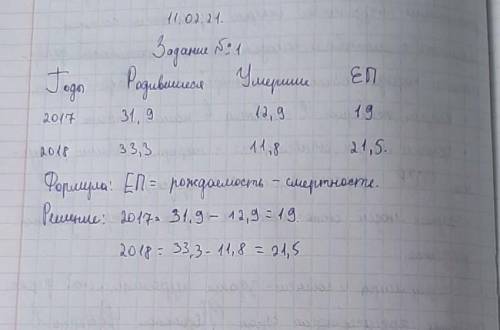 11.02.21.
Задание №1
Годы Родившиеся Умершие ЕП
2017 31,9 12,9 19
2018 33,3 11,8 21,5.
Формула: ЕП = рождаемость - смертность.
Решение: 2017 = 31,9 - 12,9 = 19
2018 = 33,3 - 11,8 = 21,5